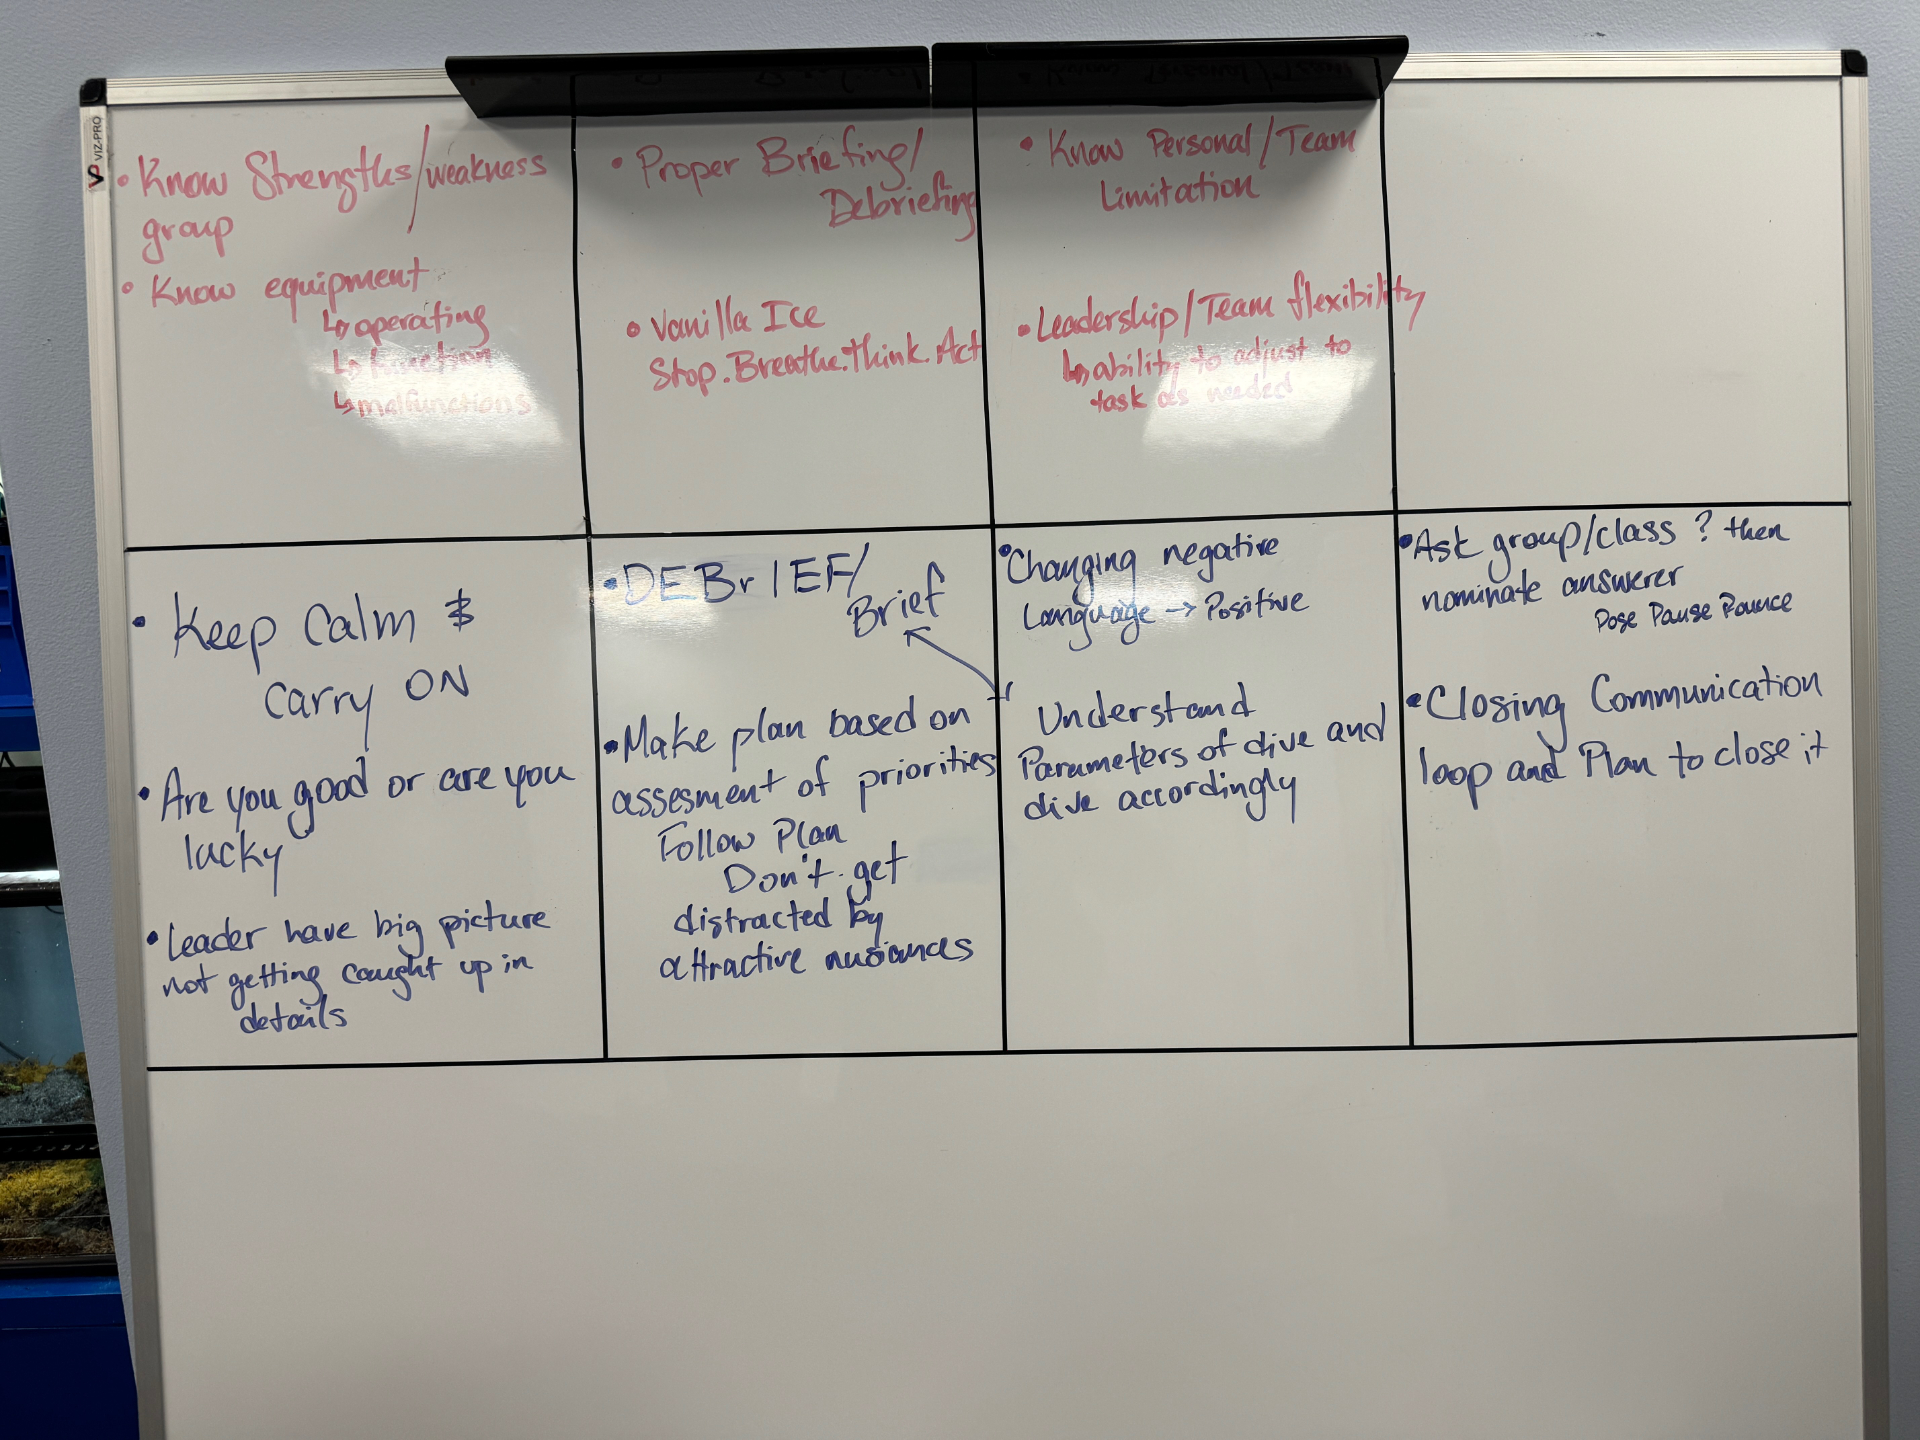 VIZ-PRO
• Know Strengths/weakness
group
• Know equipment
↳ operating
↳ function
↳ malfunctions
• Proper Briefing/
Debriefing
• Vanilla Ice
Stop.Breathe.Think.Act
• Know Personal/Team
Limitation
• Leadership/Team flexibility
↳ ability to adjust to
task as needed
• Keep Calm &
Carry ON
• Are you good or are you
lucky
• Leader have big picture
not getting caught up in
details
• DEBrIEF/
Brief
• Make plan based on
assesment of priorities
Follow Plan
Don't get
distracted by
attractive nusances
• Changing negative
Language → Positive
Understand
Parameters of dive and
dive accordingly
• Ask group/class ? then
nominate answerer
Pose Pause Pounce
• Closing Communication
loop and Plan to close it